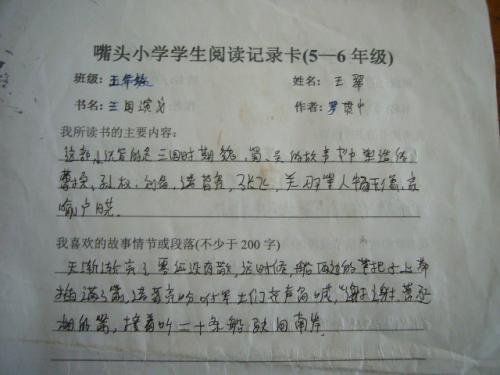 嘴头小学学生阅读记录卡(5—6年级)
班级: 五年级 姓名: 王翠
书名: 三国演义 作者: 罗贯中
我所读书的主要内容:
这部小说写的是三国时期魏、蜀、吴的故事书中塑造的
曹操、孙权、刘备、诸葛亮、张飞、关羽等人物形象,家
喻户晓。
我喜欢的故事情节或段落(不少于200字)
天渐渐亮了雾还没有散,这时候,船两边的草把子上都
插满了箭,诸葛亮吩咐军士们齐声高喊,谢谢曹丞
相的箭,接着叫二十条船驶回南岸.